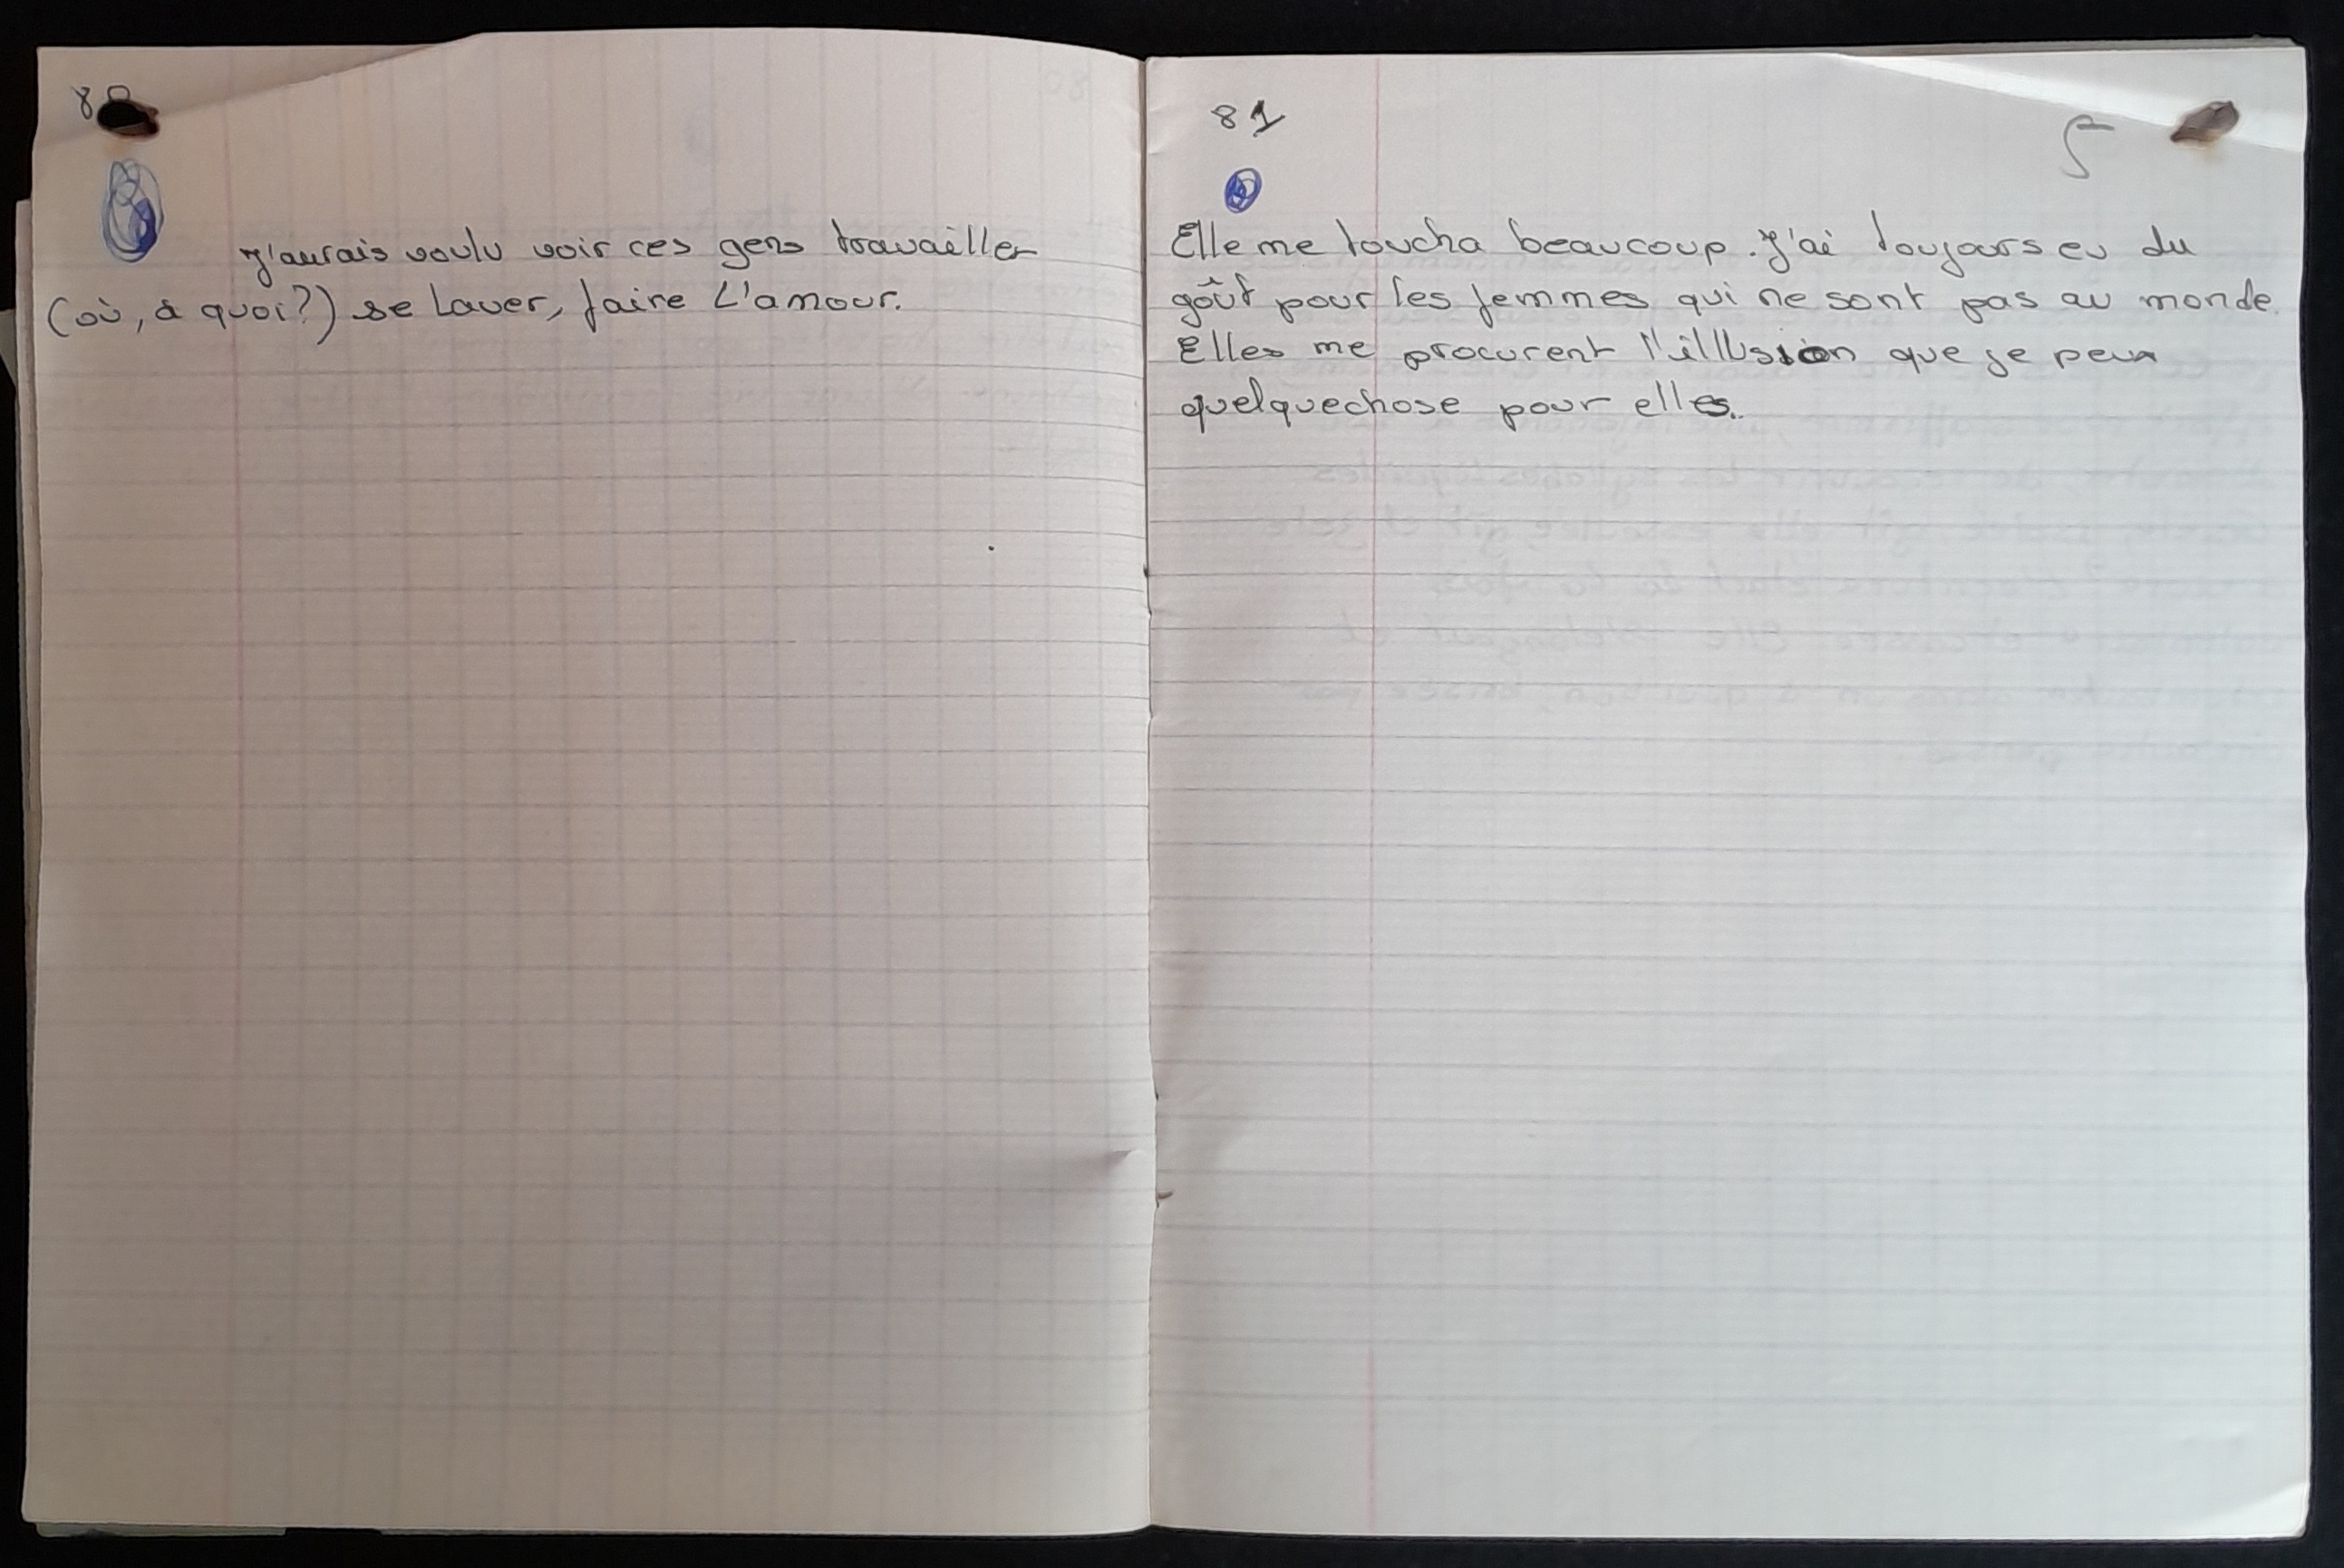 80
J'aurais voulu voir ces gens travailler
(où, à quoi?) se laver, faire L'amour.
81
5
Elle me toucha beaucoup. J'ai toujours eu du
goût pour les femmes qui ne sont pas au monde.
Elles me procurent l'illlusion que je peux
quelquechose pour elles.